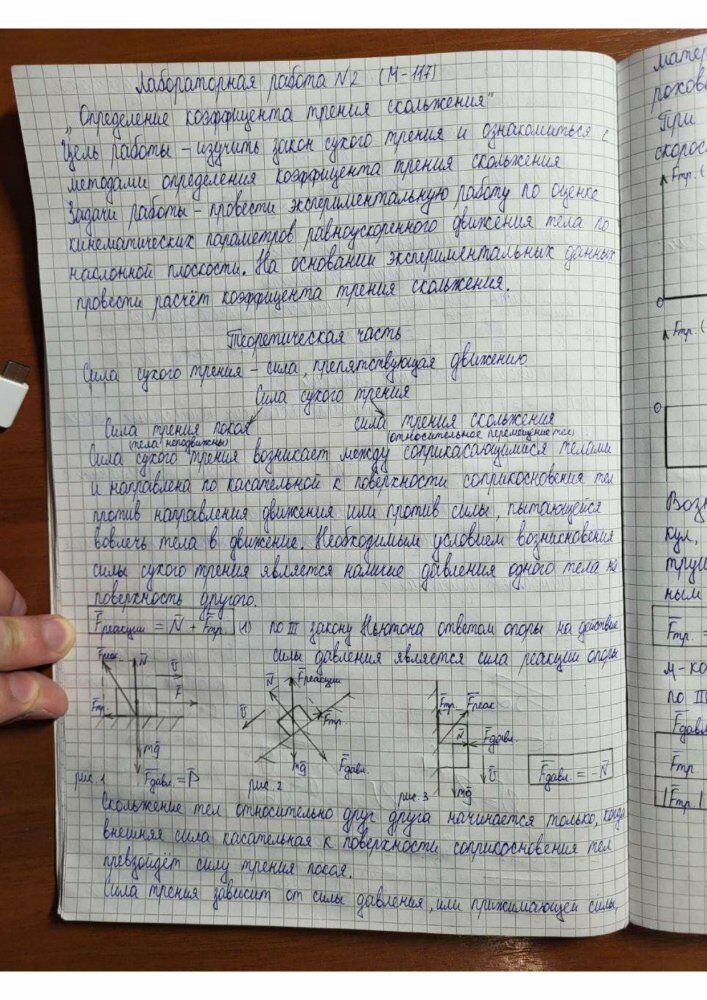 Лабораторная работа №2 (М-117)
„Определение коэффицента трения скольжения"
Цель работы – изучить закон сухого трения и ознакомиться с
методами определения коэффицента трения скольжения
Задачи работы – провести экспериментальную работу по оценке
кинематических параметров равноускоренного движения тела по
наклонной плоскости. На основании экспериментальных данных
провести расчёт коэффицента трения скольжения.
Теоретическая часть
Сила сухого трения – сила, препятствующая движению
Сила сухого трения
Сила трения покоя сила трения скольжения
(тела неподвижны) (относительное перемещение тел)
Сила сухого трения возникает между соприкасающимися телами
и направлена по касательной к поверхности соприкосновения тел
против направления движения или против силы, пытающейся
вовлечь тела в движение. Необходимым условием возникновения
силы сухого трения является наличие давления одного тела на
поверхность другого.
F̅реакции = N̅ + F̅тр. (1) по III закону Ньютона ответом опоры на действие
силы давления является сила реакции опоры
F̅реак. N̅ υ̅ F̅ F̅тр. mg̅ F̅давл. = P̅
рис. 1
N̅ F̅реакции υ̅ F̅тр. mg̅ F̅давл.
рис. 2
F̅тр. F̅реак N̅ F̅давл. υ̅ mg̅
рис. 3
F̅давл. = -N̅
Скольжение тел относительно друг друга начинается только, когда
внешняя сила касательная к поверхности соприкосновения тел
превзойдёт силу трения покоя.
Сила трения зависит от силы давления, или прижимающей силы,
матер
рохова
При
скорос
Fтр. (
0
Fтр. (
0
Возн
кул,
трущ
ным
F̅тр. =
μ-ко
по III
F̅давл
F̅тр.
|F̅тр.|